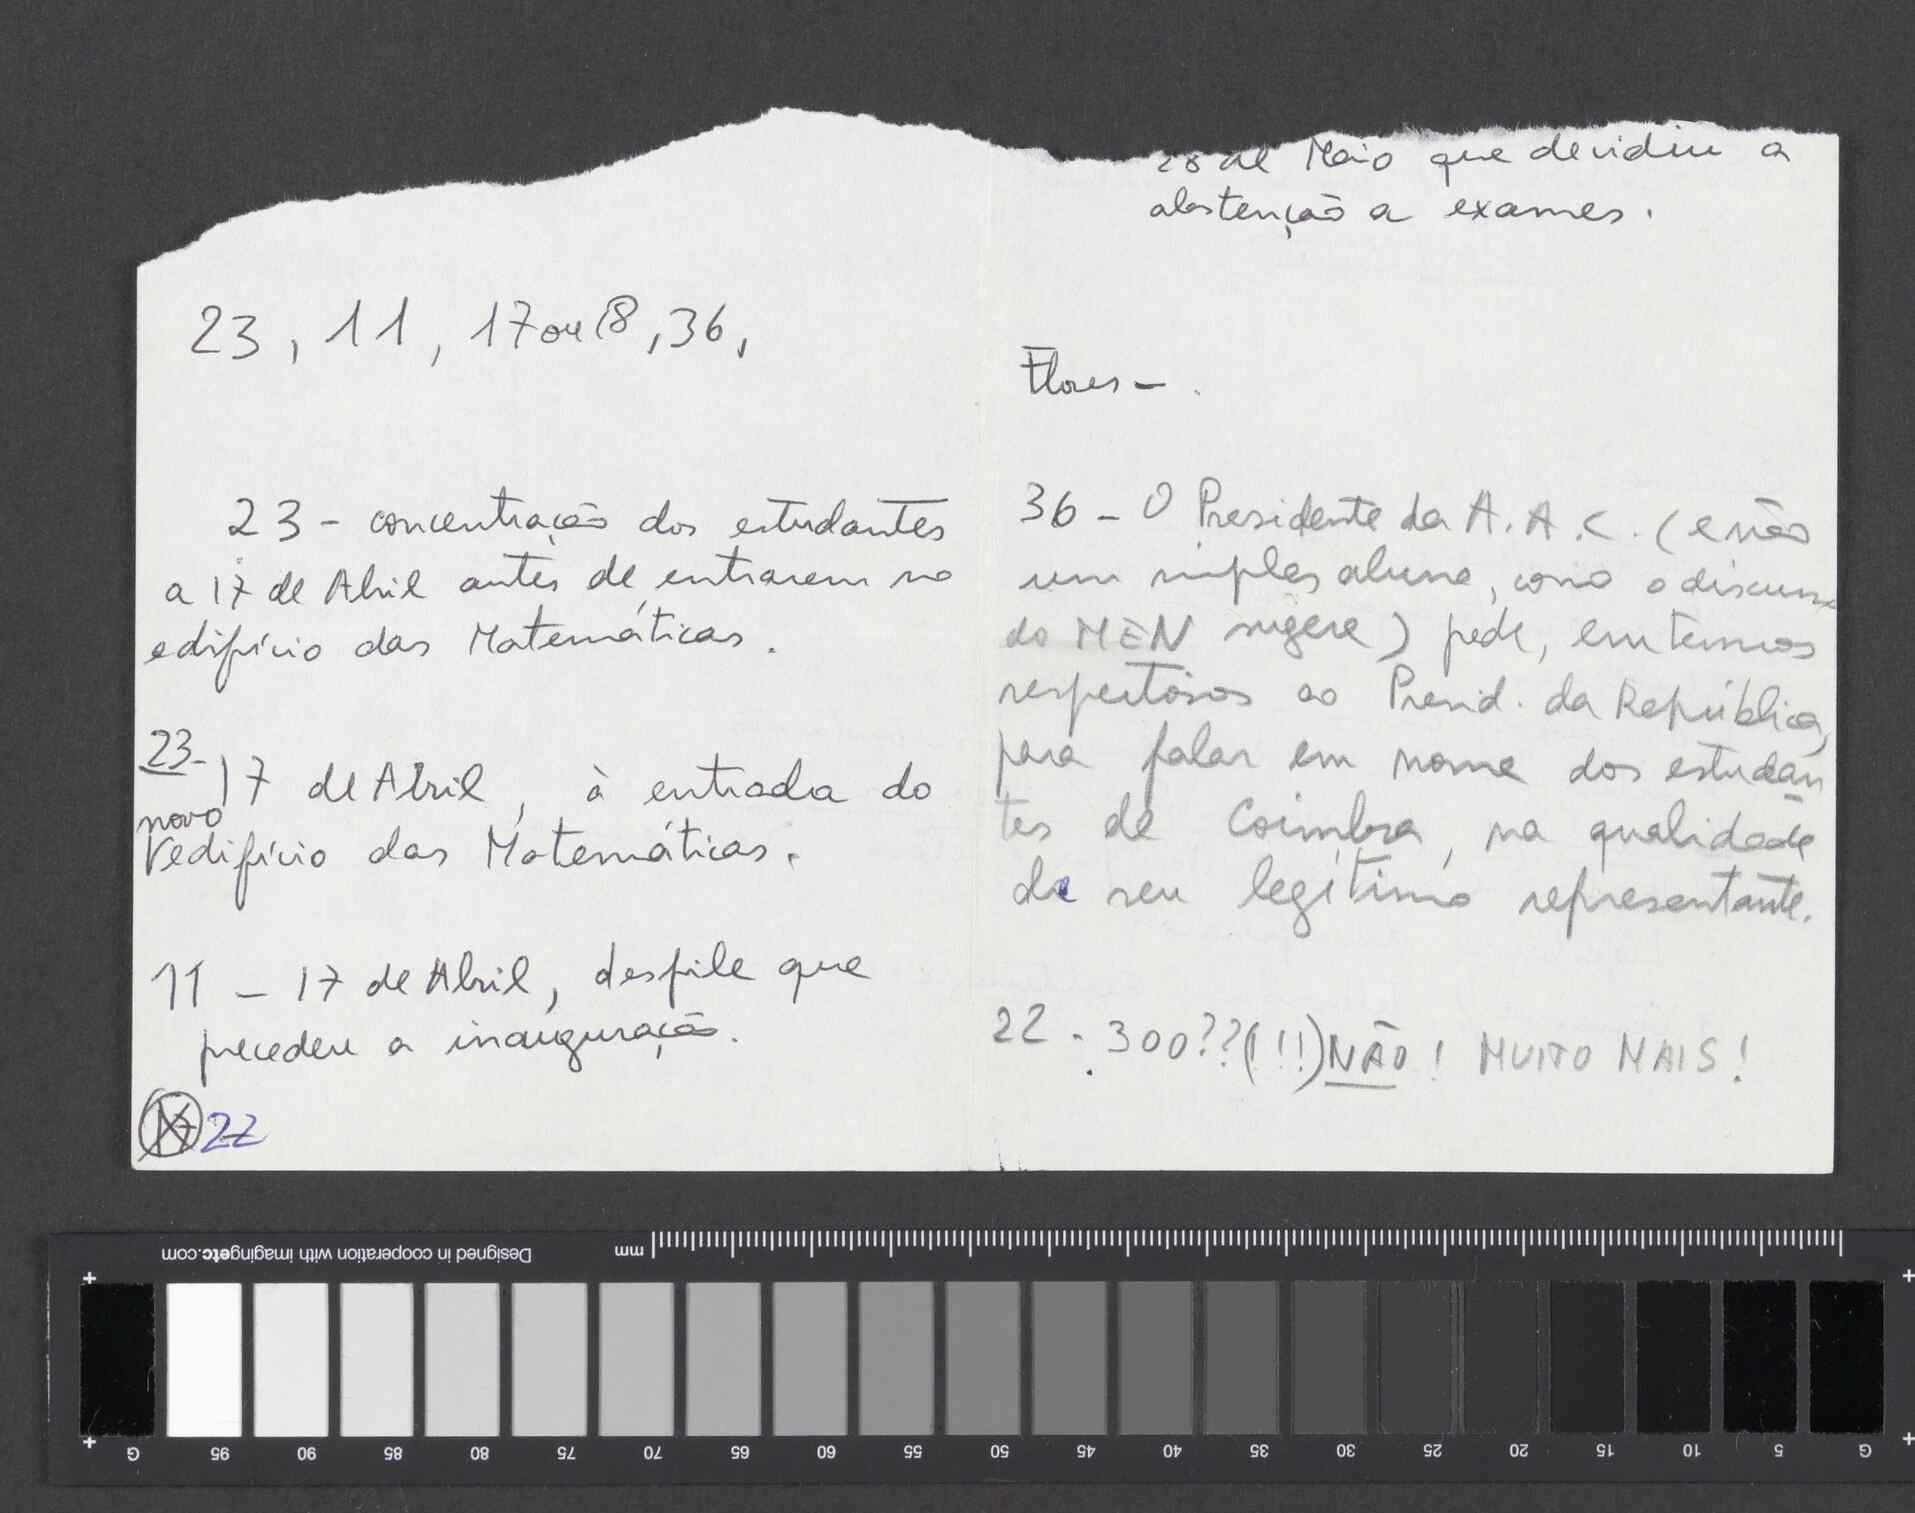 23, 11, 17 ou 18, 36,
23 - concentração dos estudantes
a 17 de Abril antes de entrarem no
edifício das Matemáticas.
23-
17 de Abril, à entrada do
novo
edifício das Matemáticas.
11 - 17 de Abril, desfile que
precedeu a inauguração.
22
28 de Maio que decidiu a
abstenção a exames.
Flores -
36 - O Presidente da A.A.C. (e não
um simples aluno, como o discurso
do MEN sugere) pede, em termos
respeitosos ao Presid. da República,
para falar em nome dos estudan
tes de Coimbra, na qualidade
de seu legítimo representante.
22 - 300??(!!!) NÃO! MUITO MAIS!
Designed in cooperation with imagingetc.com
mm
G 95 90 85 80 75 70 65 60 55 50 45 40 35 30 25 20 15 10 5 G